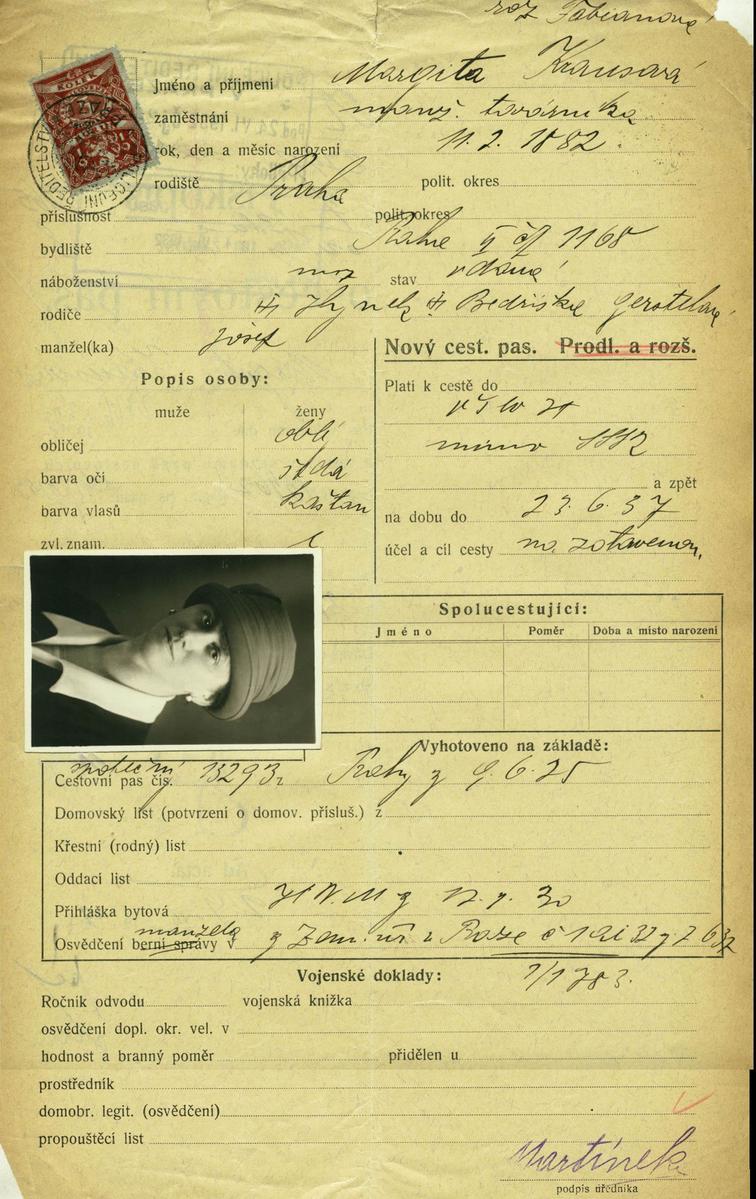 roz. Fabianová
Jméno a příjmení Margita Krausová
zaměstnání manž. továrníka
rok, den a měsíc narození 11. 2. 1882.
rodiště Praha polit. okres
příslušnost polit. okres
bydliště Praha II čp 1168
náboženství moz stav vdaná
rodiče Hynek Bedřiška
manžel(ka) Josef
Nový cest. pas. Prodl. a rozš.
Popis osoby:
Platí k cestě do
muže ženy
obličej oblý
mimo
barva očí šedá
a zpět
barva vlasů kaštan
na dobu do 23. 6. 37
zvl. znam.
účel a cíl cesty na zotavenou
Spolucestující:
Jméno Poměr Doba a místo narození
Vyhotoveno na základě:
společný
Cestovní pas čís. 13293 Prahy z 9. 6. 25
Domovský list (potvrzení o domov. přísluš.) z
Křestní (rodný) list
Oddací list
Přihláška bytová
manžela
Osvědčení berní správy v
Vojenské doklady:
Ročník odvodu vojenská knížka
osvědčení dopl. okr. vel. v
hodnost a branný poměr přidělen u
prostředník
domobr. legit. (osvědčení)
propouštěcí list
Martínek
podpis úředníka
KOLEK